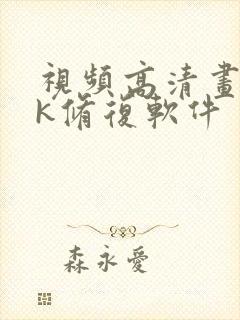 視頻高清畫
K脩復軟件
森永愛